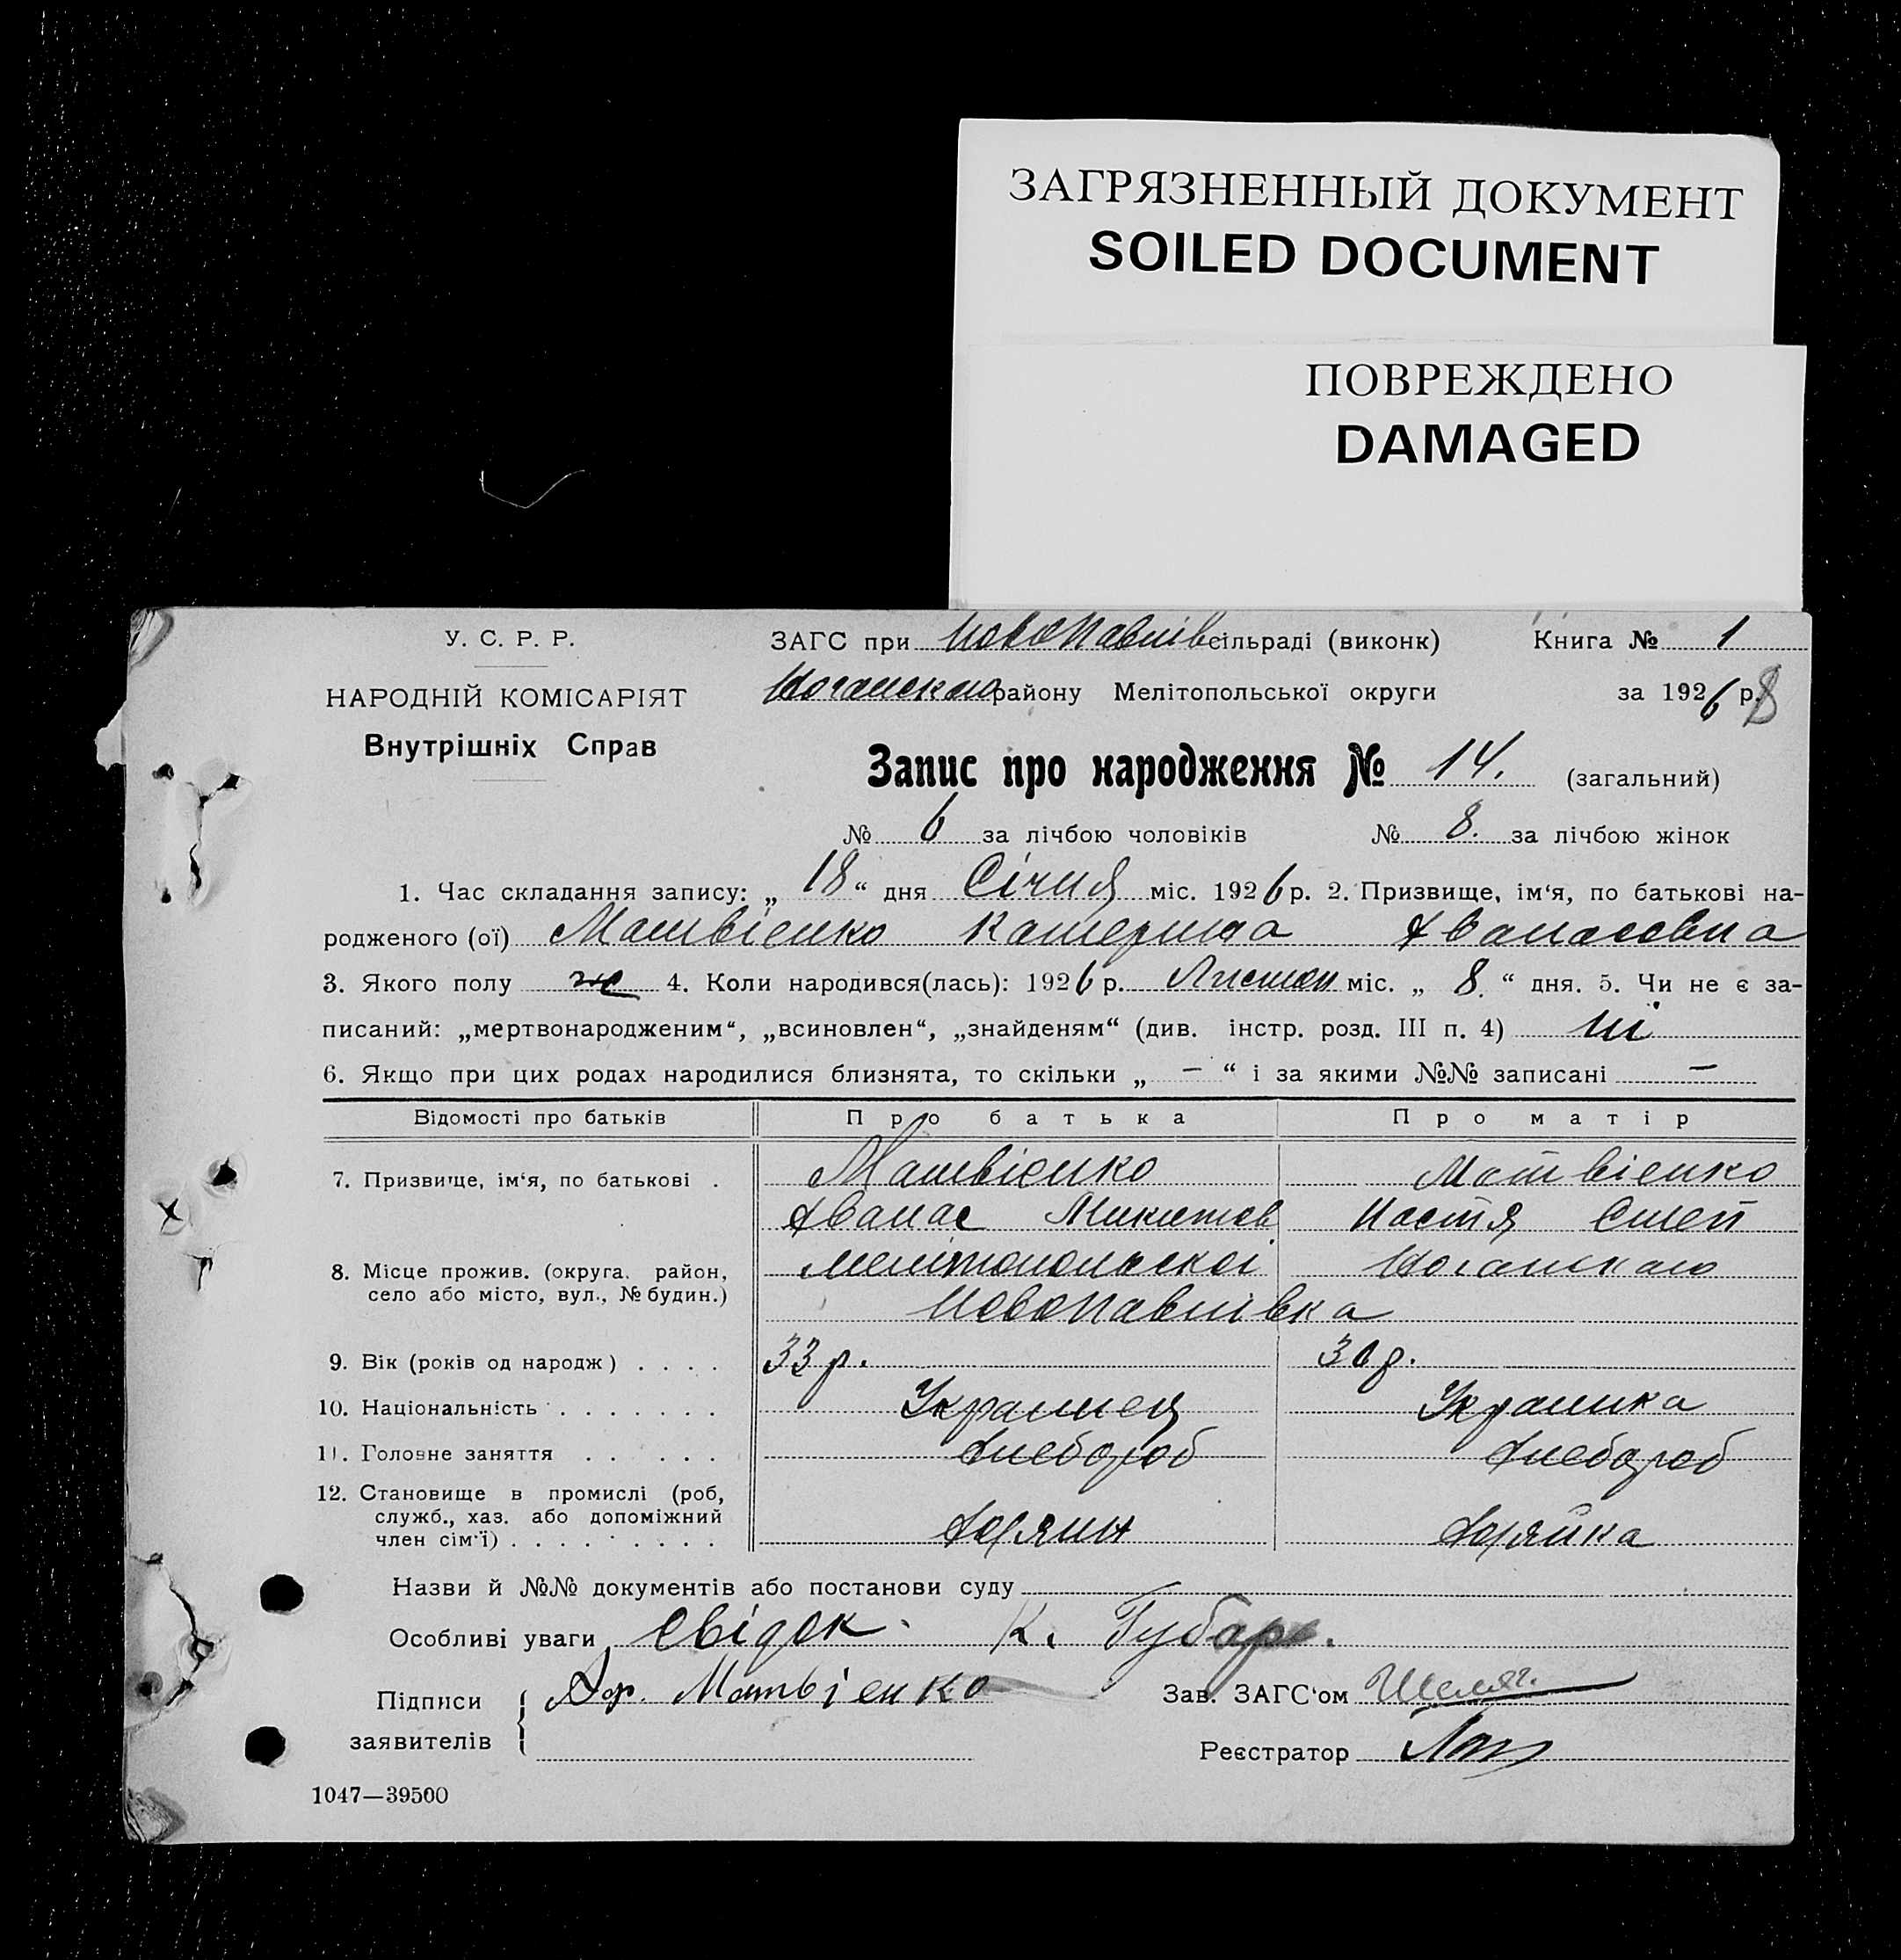 ЗАГРЯЗНЕННЫЙ ДОКУМЕНТ
SOILED DOCUMENT
ПОВРЕЖДЕНО
DAMAGED
У. С. Р. Р.
НАРОДНІЙ КОМІСАРІЯТ
Внутрішніх Справ
ЗАГС при Новопавлівсільраді (виконк) Книга № 1
Ногайского району Мелітопольської округи за 1926 р. 8
Запис про народження № 14. (загальний)
№ 6 за лічбою чоловіків № 8. за лічбою жінок
1. Час складання запису: „ 18 “ дня Січня міс. 1926 р. 2. Призвище, ім‘я, по батькові на-
родженого (ої) Матвієнко Катерина Афанасовна
3. Якого полу ж 4. Коли народився(лась): 1926 р. Листоп міс. „ 8. “ дня. 5. Чи не є за-
писаний: „мертвонародженим“, „всиновлен“, „знайденям“ (див. інстр. розд. III п. 4) ні
6. Якщо при цих родах народилися близнята, то скільки „ — “ і за якими №№ записані —
Відомості про батьків Про батька Про матір
7. Призвище, ім‘я, по батькові . Матвієнко Матвієнко
Афанас Микитов Настя Степ
8. Місце прожив. (округа, район, село або місто, вул., № будин.) Мелітопольскої Ногайского
Новопавлівка
9. Вік (років од народж) . . . . 33 р. 30 р.
10. Національність . . . . . . . Украинец Украинка
11. Головне заняття . . . . . . Хлебороб Хлебороб
12. Становище в промислі (роб,
служб., хаз. або допоміжний
член сім‘ї) . . . . . . . . . Хозяин Хозяйка
Назви й №№ документів або постанови суду
Особливі уваги Свідок. К. Губарь.
Підписи заявителів Аф. Матвієнко
Зав. ЗАГС‘ом
Реєстратор
1047—39500